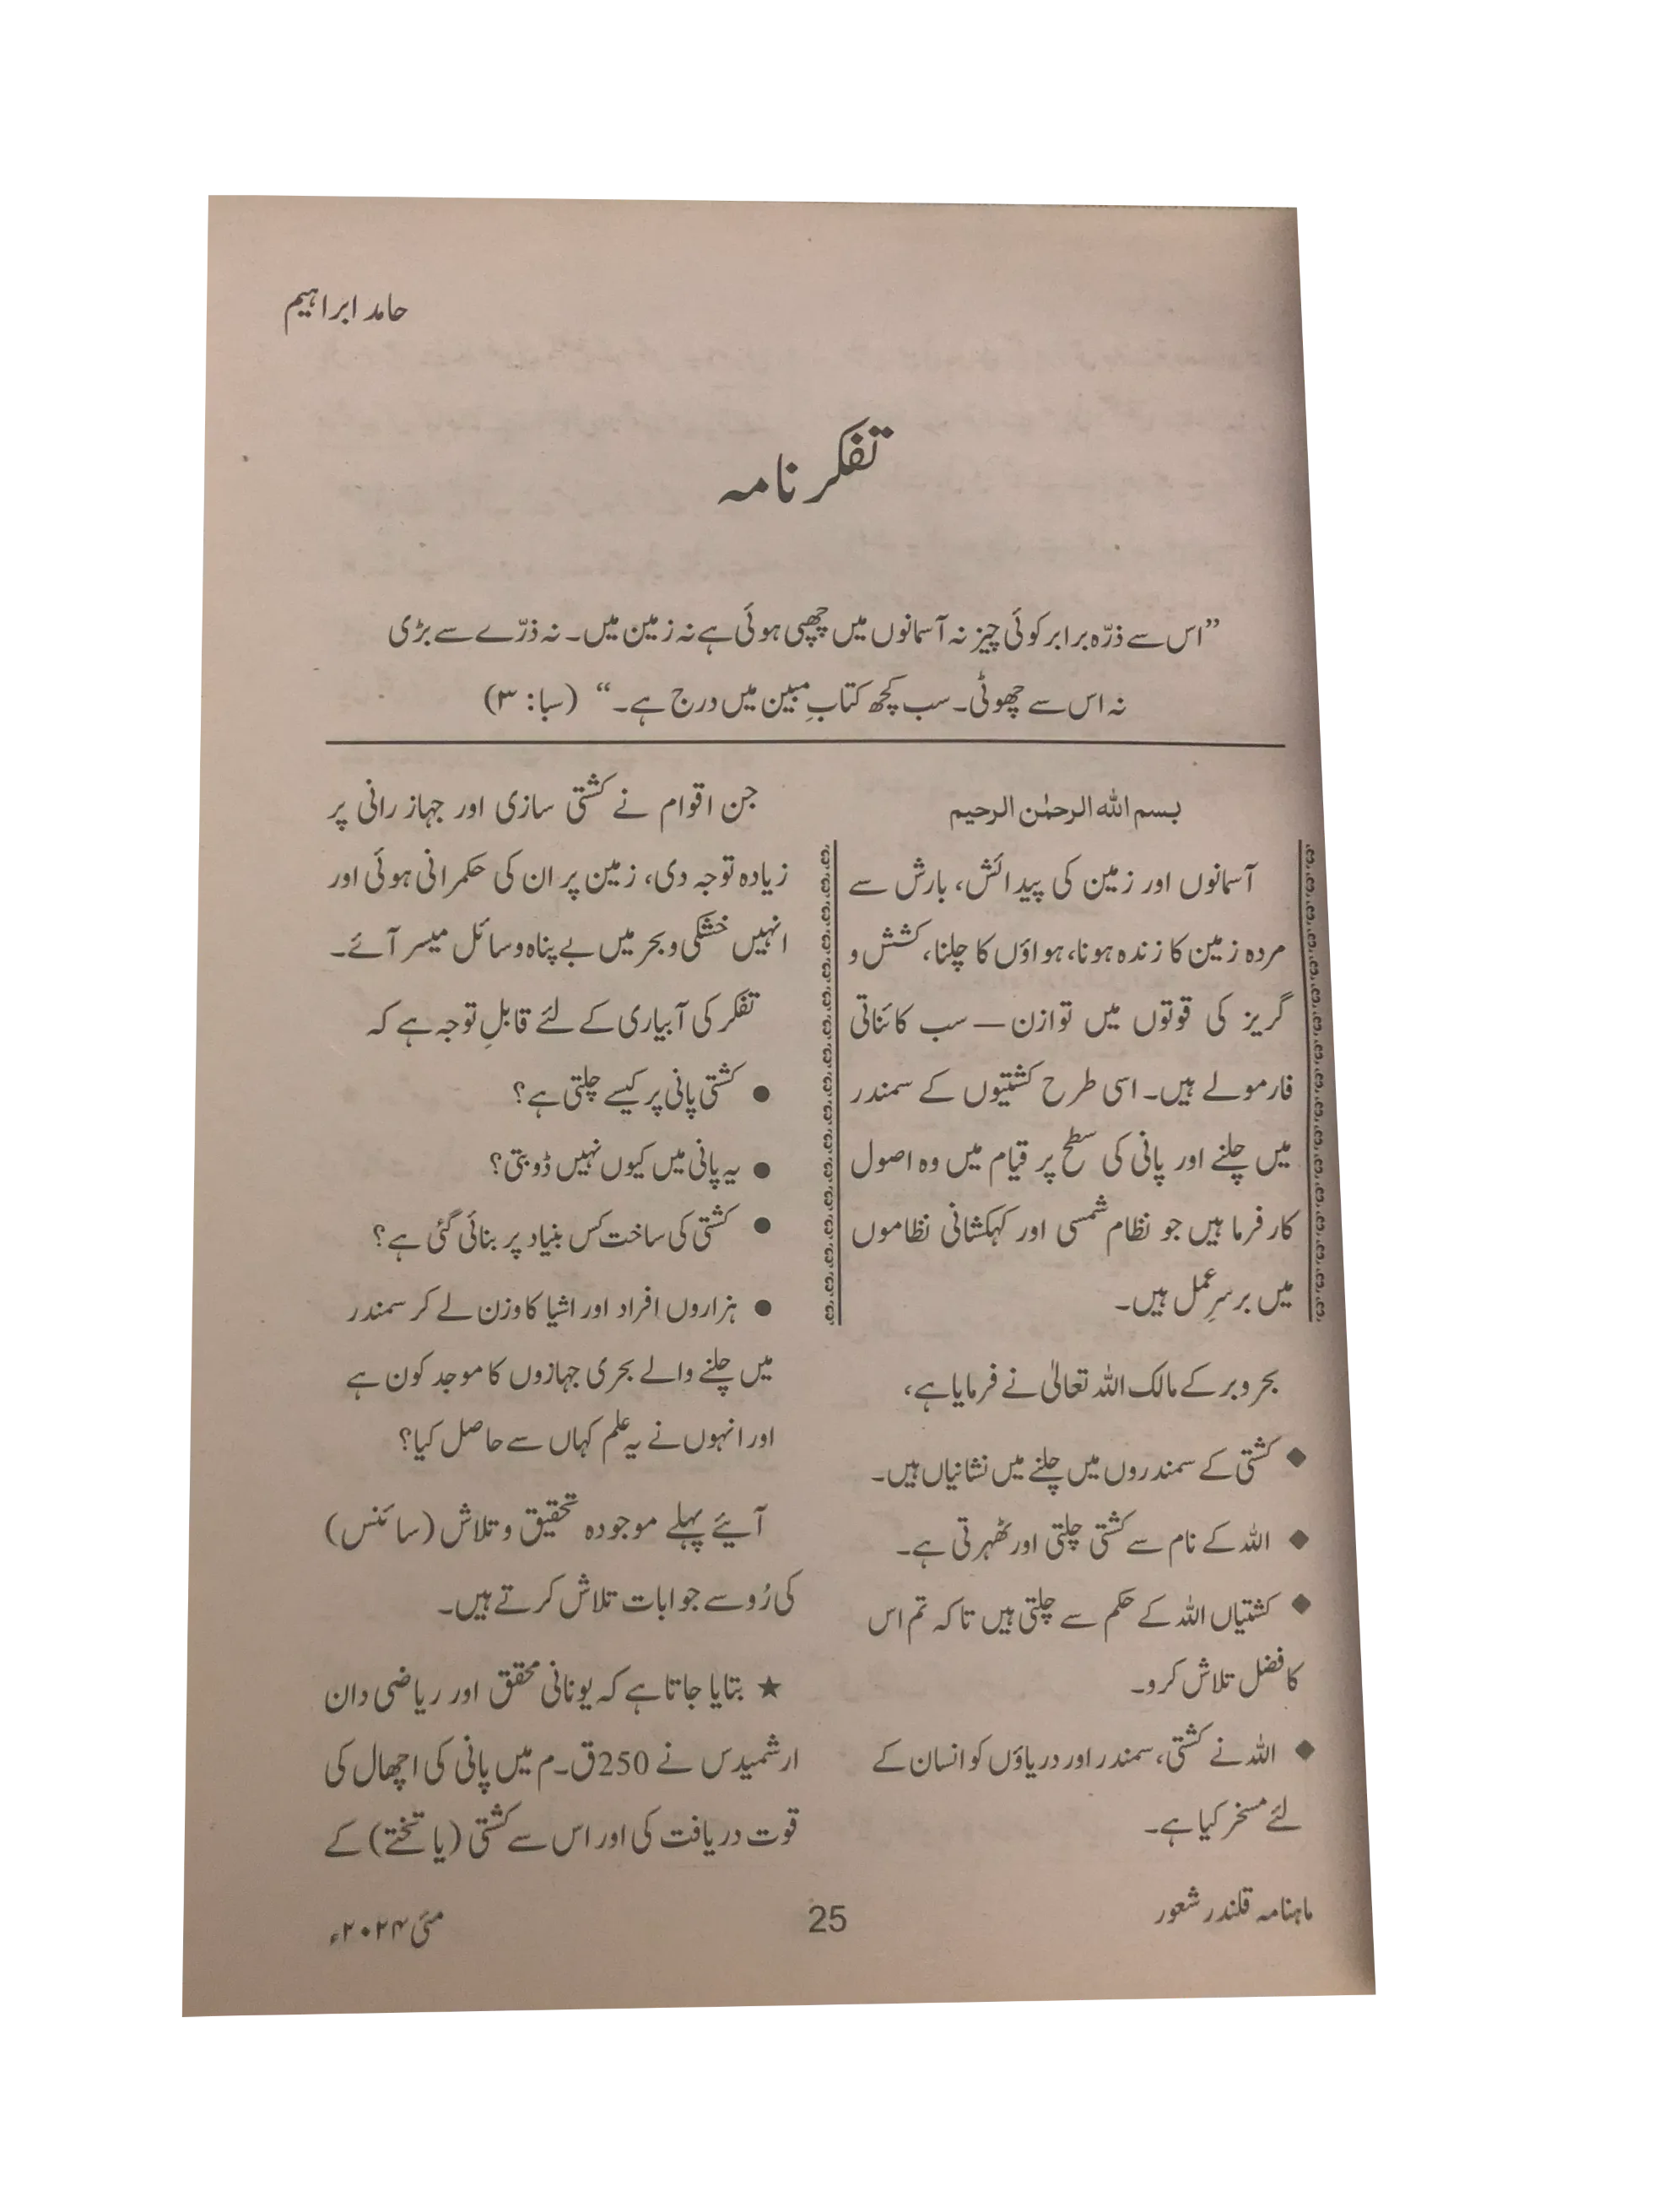 حامد ابراہیم
تفکر نامہ
”اس سے ذرّہ برابر کوئی چیز نہ آسمانوں میں چھپی ہوئی ہے نہ زمین میں۔ نہ ذرّے سے بڑی
نہ اس سے چھوٹی۔ سب کچھ کتابِ مبین میں درج ہے۔“ (سبا: ۳)
بسم اللہ الرحمٰن الرحیم
آسمانوں اور زمین کی پیدائش، بارش سے
مردہ زمین کا زندہ ہونا، ہواؤں کا چلنا، کشش و
گریز کی قوتوں میں توازن — سب کائناتی
فارمولے ہیں۔ اسی طرح کشتیوں کے سمندر
میں چلنے اور پانی کی سطح پر قیام میں وہ اصول
کارفرما ہیں جو نظام شمسی اور کہکشانی نظاموں
میں برسرِ عمل ہیں۔
بحر و بر کے مالک اللہ تعالیٰ نے فرمایا ہے،
◆ کشتی کے سمندروں میں چلنے میں نشانیاں ہیں۔
◆ اللہ کے نام سے کشتی چلتی اور ٹھہرتی ہے۔
◆ کشتیاں اللہ کے حکم سے چلتی ہیں تاکہ تم اس
کا فضل تلاش کرو۔
◆ اللہ نے کشتی، سمندر اور دریاؤں کو انسان کے
لئے مسخر کیا ہے۔
جن اقوام نے کشتی سازی اور جہاز رانی پر
زیادہ توجہ دی، زمین پر ان کی حکمرانی ہوئی اور
انہیں خشکی و بحر میں بے پناہ وسائل میسر آئے۔
تفکر کی آبیاری کے لئے قابلِ توجہ ہے کہ
● کشتی پانی پر کیسے چلتی ہے؟
● یہ پانی میں کیوں نہیں ڈوبتی؟
● کشتی کی ساخت کس بنیاد پر بنائی گئی ہے؟
● ہزاروں افراد اور اشیا کا وزن لے کر سمندر
میں چلنے والے بحری جہازوں کا موجد کون ہے
اور انہوں نے یہ علم کہاں سے حاصل کیا؟
آیئے پہلے موجودہ تحقیق و تلاش (سائنس)
کی رُو سے جوابات تلاش کرتے ہیں۔
★ بتایا جاتا ہے کہ یونانی محقق اور ریاضی دان
ارشمیدس نے 250 ق۔م میں پانی کی اچھال کی
قوت دریافت کی اور اس سے کشتی (یا تختے) کے
ماہنامہ قلندر شعور
25
مئی ۲۰۲۴ء